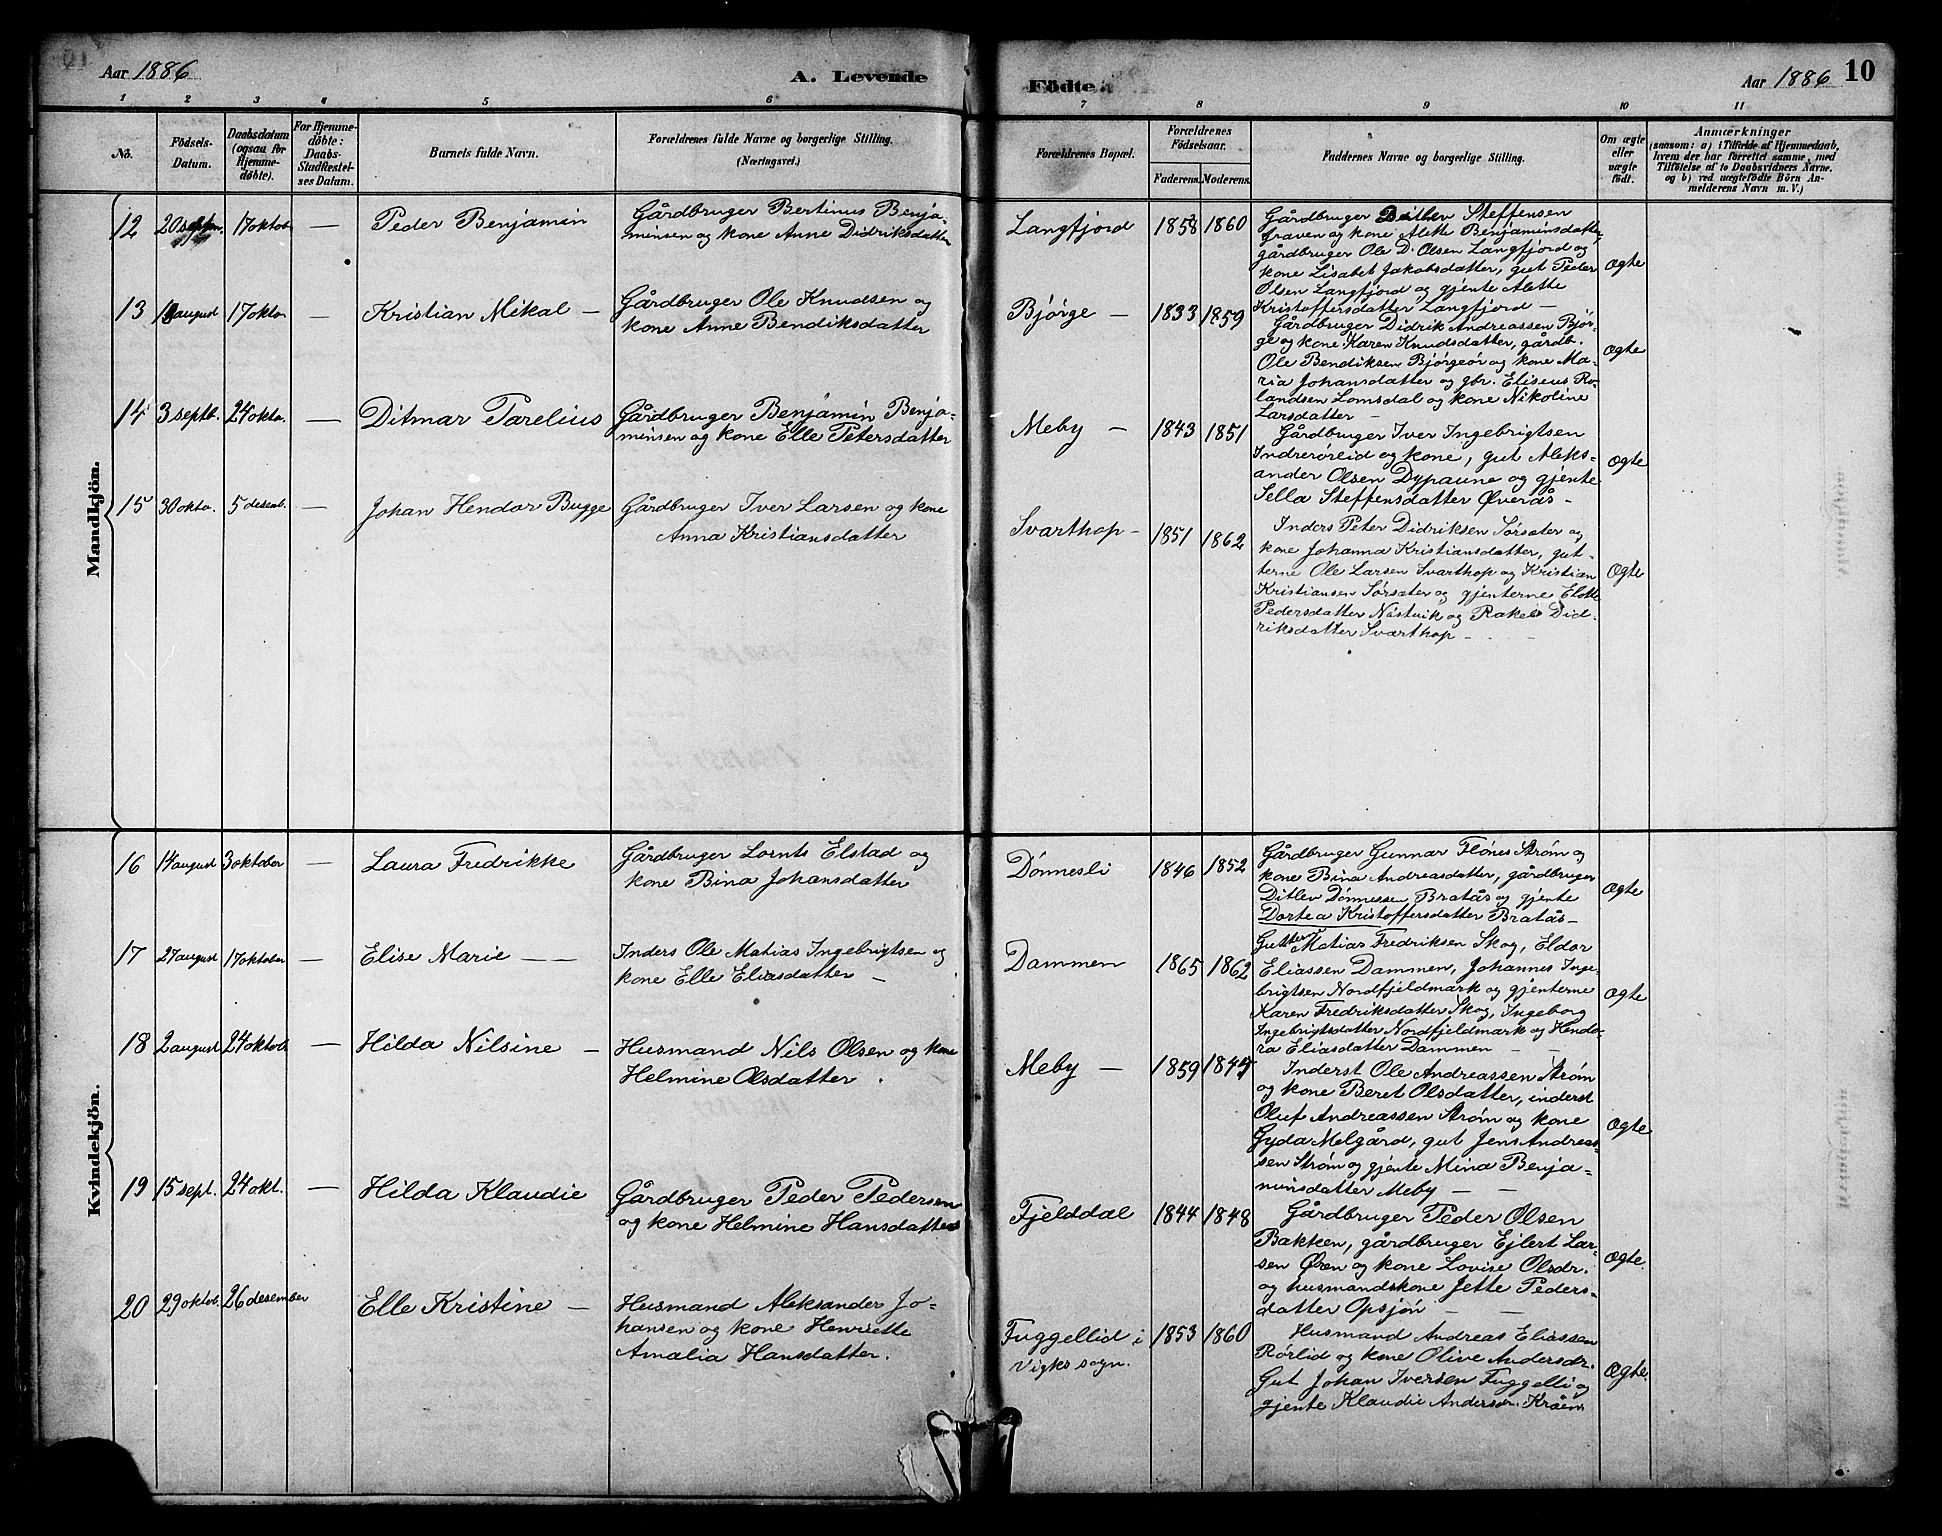 Aar 1886
A. Levende
Födte.
Aar 1886
10
1 2 3 4 5 6 7 8 9 10 11
No.
Födsels-
Datum.
Daabsdatum
(ogsaa for
Hjemme-
døbte).
For Hjemme-
døbte:
Daabs-
Stadfæstel-
ses Datum.
Barnets fulde Navn.
Forældrenes fulde Navne og borgerlige Stilling.
(Næringsvei.)
Forældrenes Bopæl.
Forældrenes
Födselsaar.
Faderens. Moderens.
Faddernes Navne og borgerlige Stilling.
Om ægte
eller
uægte
født.
Anmærkninger
(saasom: a) i Tilfælde af Hjemmedaab,
hvem der har forrettet samme, med
Tilföielse af to Daabsvidners Navne,
og b) ved uægtefödte Börn An-
melderens Navn m. V.)
Mandkjön.
12 20 septem. 17 oktob. — Peder Benjamin
Gårdbruger Bertinus Benja-
minsen og kone Anne Didriksdatter
Langfjord 1858 1860
Gårdbruger Ditlev Steffensen
Graven og kone Alette Benjaminsdatter,
gårdbruger Ole D. Olsen Langfjord og
kone Lisabet Jakobsdatter, gut Peder
Olsen Langfjord og gjente Alette
Kristoffersdatter Langfjord —
Ægte
13 august 17 okto — Kristian Mikal —
Gårdbruger Ole Knudsen og
kone Anne Bendiksdatter
Bjørge — 1833 1859
Gårdbruger Didrik Andreassen Bjør-
ge og kone Karen Knudsdatter, gårdb.
Ole Bendiksen Bjørgeör og kone Ma-
ria Johansdatter og gbr. Eliseus Ro-
landsen Lomsdal og kone Nikoline
Larsdatter —
Ægte
14 3 septb. 24 okto. — Ditmar Tarelius
Gårdbruger Benjamin Benja-
minsen og kone Elle Petersdatter
Meby — 1843 1851
Gårdbruger Iver Ingebrigtsen
Indrerørlid og kone, gut Aleks-
ander Olsen Dypaune og gjente
Sella Steffensdatter Øverås —
Ægte
15 30 okto. 5 desemb. — Johan Hendor Bugge
Gårdbruger Iver Larsen og kone
Anna Kristiansdatter
Svarthop — 1851 1862
Inders Peter Didriksen Sørsater og
kone Johanna Kristiansdatter, gut-
terne Ole Larsen Svarthop og Kristian
Kristiansen Sørsater og gjenterne Elotte
Pedersdatter Nästvik og Rakel Did-
riksdatter Svarthop —
Ægte
Kvindekjön.
16 14 august 3 oktober — Laura Fredrikke
Gårdbruger Lornts Elstad og
kone Bina Johansdatter
Dønnesli 1846 1852
Gårdbruger Gunnar Flønes Strøm og
kone Bina Andreasdatter, gårdbruger
Ditlev Dønnessen Bratås og gjente
Dortea Kristoffersdatter Bratås —
Ægte
17 27 august 17 oktober — Elise Marie — —
Inders Ole Matias Ingebrigtsen og
kone Elle Eliasdatter —
Dammen 1865 1862
Gutter Matias Fredriksen Skog, Eldor
Eliassen Dammen, Johannes Inge-
brigtsen Nordfjeldmark og gjenterne
Karen Fredriksdatter Skog, Ingeborg
Ingebrigtsdatter Nordfjeldmark og Hendo-
ra Eliasdatter Dammen — —
Ægte
18 2 august 24 oktob — Hilda Nilsine —
Husmand Nils Olsen og kone
Helmine Olsdatter .
Meby — 1859
Inderst Ole Andreassen Strøm
og kone Beret Olsdatter, inderst
Oluf Andreassen Strøm og kone
Gyda Melgård, gut Jens Andreas-
sen Strøm og gjente Mina Benja-
minsdatter Meby — —
Ægte
19 15 sept. 24 okt. — Hilda Klaudie
Gårdbruger Peder Pedersen
og kone Helmine Hansdatter
Fjelddal 1844 1848
Gårdbruger Peder Olsen
Bakken, gårdbruger Ejlert Lar-
sen Øren og kone Lovise Olsdr.
og husmandskone Jette Peders-
datter Opsjön — —
Ægte.
20 29 oktob. 26 desember Elle Kristine —
Husmand Aleksander Jo-
hansen og kone Henriette
Amalia Hansdatter.
Fuggellid i
Vigks sogn.
1853 1860
Husmand Andreas Eliassen
Rørlid og kone Olive Andersdr.
Gut Johan Iversen Fuggelli og
gjente Klaudie Andersdr. Kråen
Ægte.